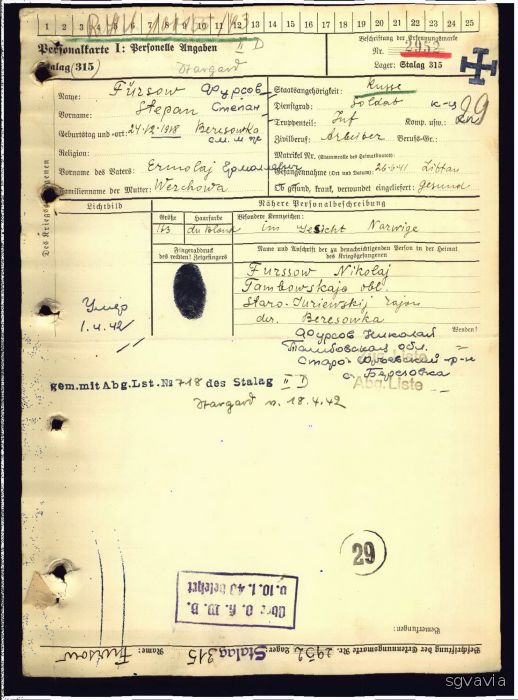 1 2 3 4 5 6 7 8 9 10 11 12 13 14 15 16 17 18 19 20 21 22 23 24 25
Personalkarte I: Personelle Angaben
II D
Stalag (315)
Stargard
Beschriftung der Erkennungsmarke
Nr. 2952
Lager: Stalag 315
Des Kriegsgefangenen
Name: Fürsow Фурсов
Vorname: Stepan Степан
Geburtstag und -ort: 24.12.1918 Beresowka
Religion:
Vorname des Vaters: Ermolaj Ермолаевич
Familienname der Mutter: Werchowa
Staatsangehörigkeit: Russe
Dienstgrad: Soldat к-ц
Truppenteil: Inf Komp. usw.:
Zivilberuf: Arbeiter Berufs-Gr.:
Matrikel Nr. (Stammrolle des Heimatstaates):
Gefangennahme (Ort und Datum): 26.6.41 Littau
Ob gesund, krank, verwundet eingeliefert: gesund
29
Lichtbild
Nähere Personalbeschreibung
Größe
Haarfarbe
Besondere Kennzeichen:
163
im Gesicht Narwige
Fingerabdruck
des rechten! Zeigefingers
Name und Anschrift der zu benachrichtigenden Person in der Heimat
des Kriegsgefangenen
Furssow Nikolaj
Tambowskaja obl.
Staro-Juriewskij rajon
der. Beresowka
Wenden!
Умер
1.4.42
Фурсов Николай
Тамбовская обл.
Старо-Юрьевский р-н
с. Березовка
Abg. Liste
gem. mit Abg. Lst. № 718 des Stalag II D
Stargard v. 18.4.42
29
Übr. O. K. W. B.
v. 10. 1. 40 belehrt
Bemerkungen:
Beschriftung der Erkennungsmarke Nr. 2952 Lager: Stalag 315 Name: Fursow
sgvavia